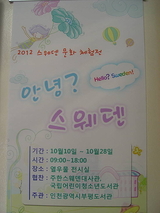 2012 스웨덴 문화 체험전
안녕?
Hello? Sweden!
스웨덴
기간 : 10월10일 ~ 10월28일
시간 : 09:00~18:00
장소 : 열우물 전시실
협찬 : 주한스웨덴대사관
국립어린이청소년도서관
주관 : 인천광역시부평도서관